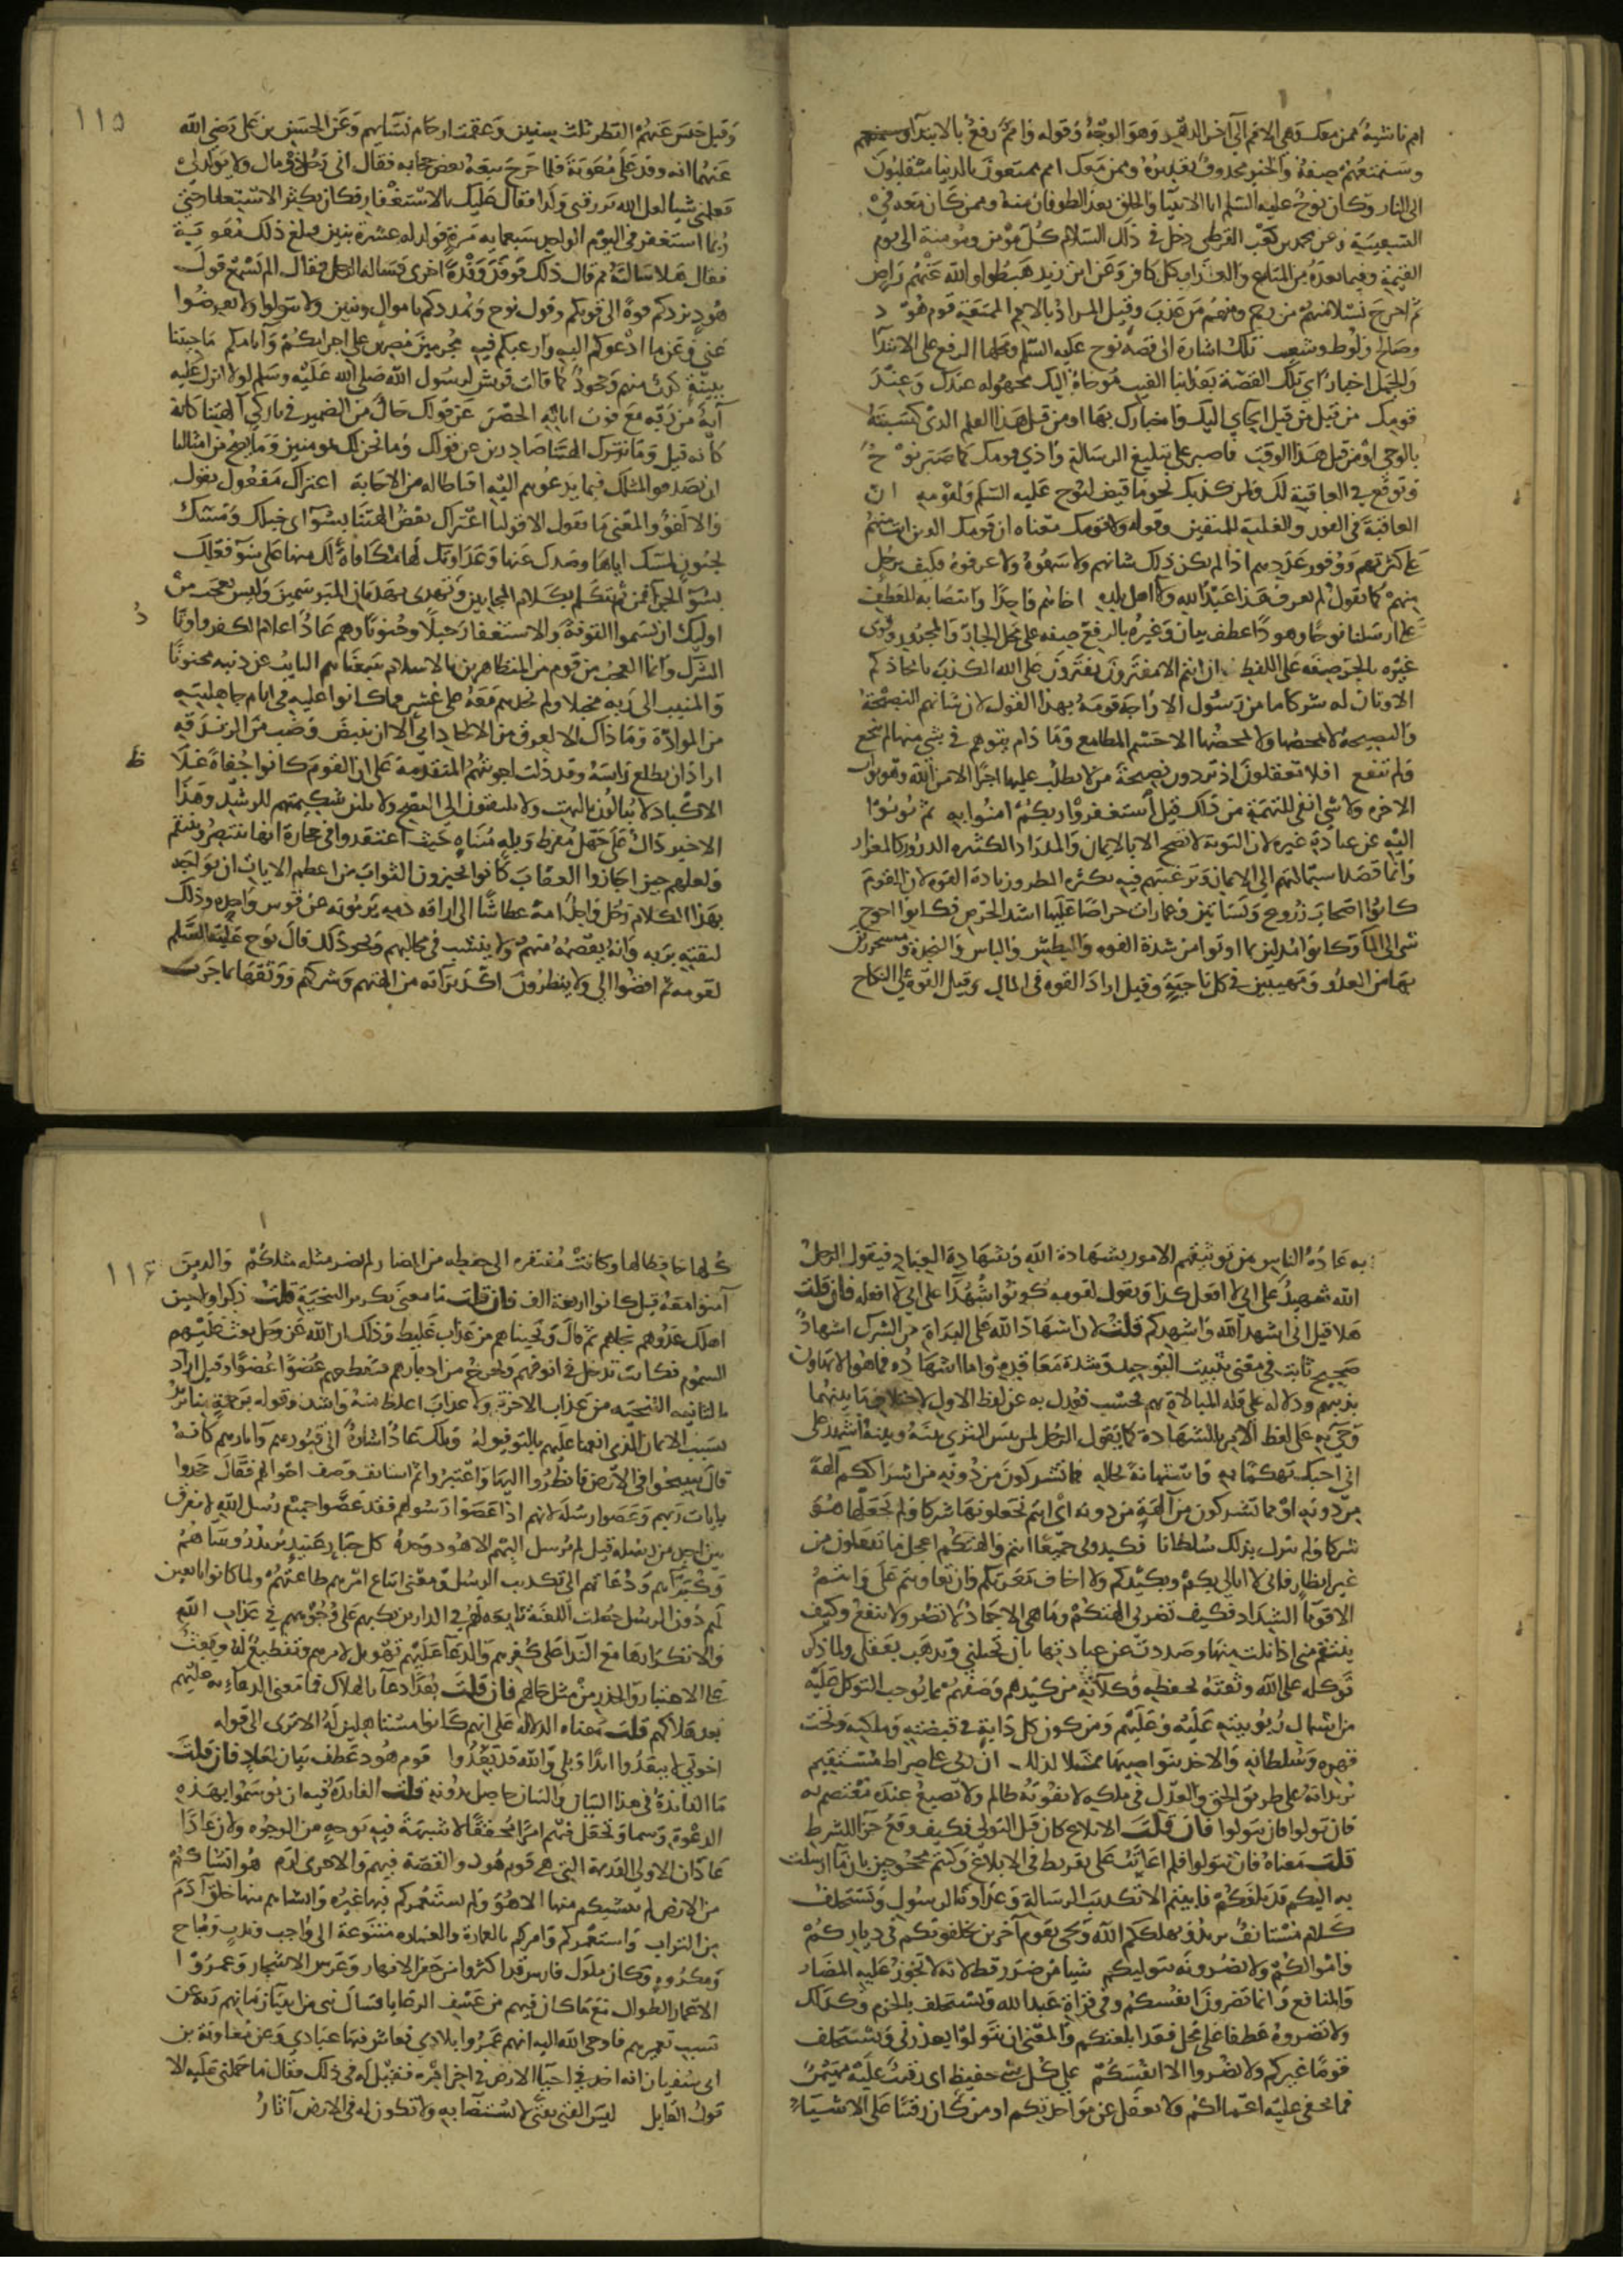 امم ناشئة ممن معك وهى الامم الى اخر الدهر وهو الوجه وقوله وامم رفع بالابتدآ وسنمتعهم
وسنمتعهم صفة والخبر محذوف تقديره وممن معك امم ممتعون بالدنيا منقلبون
الى النار وكان نوح عليه السلم ابا الانبيآ والخلق بعد الطوفان منه وممن كان معه في
السفينة وعن محمد بن كعب القرظى دخل في ذلك السلام كل مؤمن ومؤمنة الى يوم
القيمة وفيما بعده من المتاع والعذاب كل كافر وعن ابن زيد هبطوا والله عنهم راض
ثم اخرج نسلا منهم من رحم ومنهم من عذب وقيل المراد بالامم الممتعة قوم هود
وصالح ولوط وشعيب تلك اشارة الى قصة نوح عليه السلم ومحلها الرفع على الابتدآ
والجمل اخبار اى تلك القصة بعض انبا الغيب موحاة اليك مجهولة عندك وعند
قومك من قبل من قبل ايحاى اليك واخبارك بها او من قبل هذا العلم الذى كسبته
بالوحى او من قبل هذا الوقت فاصبر على تبليغ الرسالة واذى قومك كما صبر نوح
وتوقع في العاقبة لك ولمن كذبك نحو ما قيض لنوح عليه السلم ولقومه ان
العاقبة في الفوز والغلبة للمتقين وقوله ولا قومك معناه ان قومك الذين انت منهم
على كثرتهم ووفور عددهم اذا لم يكن ذلك شانهم ولا سمعوه ولا عرفوه فكيف برجل
منهم كما تقول لم يعرف هذا عبد الله ولا اهل بلده اخاهم واحدا وانتصابه للعطف
على ارسلنا نوحا وهودا عطف بيان وغيره بالرفع صفه على محل الجار والمجرور وقرى
غيره بالجر صفة على اللفظ ان انتم الا مفترون تفترون على الله الكذب باتخاذكم
الاوثان له شركا ما من رسول الا واجه قومه بهذا القول لان شانهم النصيحة
والنصيحة لا يمحصها ولا يمحضها الا حسم المطامع وما دام يتوهم في شى منها لم تنجع
ولم تنفع افلا تعقلون اذ تردون نصيحة من لا يطلب عليها اجرا الا من الله وهو ثواب
الاخره ولا شى انفى للتهمة من ذلك قيل استغفروا ربكم امنوا به ثم توبوا
اليه عن عبادة غيره لان التوبة لا تصح الا بالايمان والمدرار الكثير الدرور كالمغزار
وانما قصد استمالتهم الى الايمان وترغيبهم فيه بكثرة المطر وزيادة القوه لان القوم
كانوا اصحاب زروع وبساتين وعمارات حراصا عليها اشد الحرص فكانوا احوج
شى الى المآ وكانوا مدلين بما اوتوا من شدة القوه والبطش والباس والنجدة مستحرزين
بها من العدو ومهيبين في كل ناحية وقيل اراد القوه فى المال وقيل القوة على النكاح
١١٥
وقيل حبس عنهم القطر ثلث سنين وعقمت ارحام نسآيهم وعن الحسن بن على رضى الله
عنهما انه وفد على معوية فلما خرج تبعه بعض حجابه فقال انى رجل ذو مال ولا يولد لى
فعلمنى شيا لعل الله يرزقنى ولدا فقال عليك بالاستغفار فكان يكثر الاستغفار حتى
ربما استغفر فى اليوم الواحد سبعمايه مرة فولد له عشرة بنين وبلغ ذلك معوية
فقال هلا سالته مم قال ذلك فوفد وفدة اخرى فساله الرجل فقال الم تسمع قول
هود يزدكم قوة الى قوتكم وقول نوح ويمددكم باموال وبنين ولا تتولوا ولا تعرضوا
عنى وعن ما ادعوكم اليه وارغبكم فيه مجرمين مصرين على اجرامكم وآثامكم ما جيتنا
ببينة كذب منهم وجحود كما قالت قريش لرسول الله صلى الله عليه وسلم لولا انزل عليه
آية من ربه مع فوت اياته الحصر عن قولك حال من الضمير في تاركى آلهتنا كانه
كانه قيل وما نترك الهتنا صادرين عن قولك وما نحن لك بمومنين وما يصح من امثالنا
ان يصدقوا مثلك فيما يدعوهم اليه اقناطا له من الاجابة اعتراك مفعول نقول
والا لغو والمعنى ما نقول الا قولنا اعتراك بعض الهتنا بسوء اى خبلك ومسك
بجنون لسبك اياها وصدك عنها وعداوتك لها مكافاة لك منها على سوء فعلك
بسوء الجزآ فمن ثم تتكلم بكلام المجانين وتهذى بهذيان المبرسمين وليس بعجب من
اوليك ان يسموا التوبة والاستغفار خبلا وجنونا وهم عاد اعلام الكفر واوتاد
الشرك وانما العجب من قوم من المتظاهرين بالاسلام سمعناهم التايب عن ذنبه مجنونا
والمنيب الى ربه مخبلا ولم نجدهم معه على عشر مما كانوا عليه فى ايام جاهليته
من الموادة وما ذاك الا لعرق من الالحاد ابى الا ان ينبض وضب من الزندقة
اراد ان يطلع راسه وقد دلت اجوبتهم المتقدمة على ان القوم كانوا جفاة غلاظ
الاكباد لا يبالون بالبهت ولا يلتفتون الى النصح ولا تلين شكيمتهم للرشد وهذا
الاخير دال على جهل مفرط وبله متناه حيث اعتقدوا فى حجارة انها تنتصر وتنتقم
ولعلهم حين اجازوا العقاب كانوا يجيزون الثواب من اعظم الايات ان يواجه
بهذا الكلام رجل واحد امة عطاشا الى اراقة دمه يرمونه عن قوس واحده وذلك
لثقته بربه وانه يعصمه منهم ولا ينشب فى مخالبهم ونحو ذلك قال نوح عليه السلم
لقومه ثم اقضوا الى ولا ينظرون اكد برآته من الهتهم وشركهم ووثقها بما جرت
به عادة الناس من توثيقهم الامور بشهادة الله وشهادة العباد فيقول الرجل
الله شهيد على انى لا افعل كذا ويقول لقومه كونوا شهدآ على انى لا افعله فان قلت
هلا قيل انى اشهد الله واشهدكم قلت لان اشهاد الله على البرآة من الشرك اشهاد
صحيح ثابت فى معنى تثبيت التوحيد وشدة معاقده واما اشهادهم فما هو الا تهاون
بدينهم ودلالة على قلة المبالاة بهم فحسب فعدل به عن لفظ الاول لاختلاف ما بينهما
وجى به على لفظ الامر بالشهادة كما يقول الرجل لمن يبس الثرى بينه وبينه اشهد على
انى احبك تهكما به واستهانة بحاله مما تشركون من دونه من اشراككم آلهة
من دونه او مما تشركون من آلهة من دونه اى انتم تجعلونها شركا ولم يجعلها هو
شركا ولم ينزل بذلك سلطانا فكيدونى جميعا انتم والهتكم اعجل ما تفعلون من
غير انظار فانى لا ابالى بكم وبكيدكم ولا اخاف معرتكم وان تعاونتم على وانتم
الاقويآ الشداد فكيف تضرنى الهتكم وما هى الا جماد لا تضر ولا تنفع وكيف
ينتقم منى اذا نلت منها وصددت عن عبادتها بان تخبلنى وتذهب بعقلى ولما ذكر
توكله على الله وثقته بحفظه وكلآءته من كيدهم وصفهم بما يوجب التوكل عليه
من اشتمال ربوبيته عليه وعليهم ومن كون كل دابة فى قبضته وملكته وتحت
قهره وسلطانه والاخذ بنواصيها تمثيلا لذلك ان ربى على صراط مستقيم
يريد انه على طريق الحق والعدل فى ملكه لا يفوته ظالم ولا يضيع عنده معتصم به
فان تولوا فان تتولوا فان قلت الابلاغ كان قبل التولى فكيف وقع جزآ للشرط
قلت معناه فان تتولوا فلم اعاتب على تفريط فى الابلاغ وكنتم محجوجين بان ما ارسلت
به اليكم قد بلغكم فابيتم الا تكذيب الرسالة وعداوة الرسول ويستخلف
كلام مستانف يريد ويهلككم الله ويجى بقوم آخرين يخلفونكم فى دياركم
واموالكم ولا تضرونه بتوليكم شيا من ضرر قط لانه لا تجوز عليه المضار
والمنافع وانما تضرون انفسكم وفى قراة عبد الله ويستخلف بالجزم وكذلك
ولا تضروه عطفا على محل فقد ابلغتكم والمعنى ان تتولوا يعذرنى ويستخلف
قوما غيركم ولا تضروا الا انفسكم على كل شى حفيظ اى رقيب عليه مهيمن
فما تخفى عليه اعمالكم ولا يغفل عن مواخذتكم او من كان رقيبا على الاشياء
١١٦
كلها حافظا لها وكانت مفتقرة الى حفظه من المضار لم يضر مثله مثلكم والذين
آمنوا معه قيل كانوا اربعة الف فان قلت ما معنى تكرير التنجية قلت ذكر اولا حين
اهلك عدوهم نجاهم ثم قال ونجيناهم من عذاب غليظ وذلك ان الله عز وجل بعث عليهم
السموم فكانت تدخل فى انوفهم وتخرج من ادبارهم فتقطعهم عضوا عضوا وقيل اراد
بالثانيه التنجيه من عذاب الاخرة ولا عذاب اغلظ منه واشد وقوله برحمة منا يريد
بسبب الايمان الذى انعمنا عليهم بالتوفيق له وتلك عاد اشارة الى قبورهم وآثارهم كانه
قال سيحوا فى الارض فانظروا اليها واعتبروا ثم استانف وصف احوالهم فقال جحدوا
بايات ربهم وعصوا رسله لانهم اذا عصوا رسولهم فقد عصوا جميع رسل الله لا نفرق
بين احد من رسله قيل لم يرسل اليهم الا هود وحده كل جبار عنيد يريد روساهم
وكبرآهم ودعاتهم الى تكذيب الرسل ومعنى اتباع امرهم طاعتهم ولما كانوا تابعين
لهم دون الرسل جعلت اللعنة تابعة لهم فى الدارين تكبهم على وجوههم فى عذاب الله
والا تكرارها مع الندآ على كفرهم والدعآ عليهم تهويل لامرهم وتفظيع له وبعث
على الاعتبار والحذر من مثل حالهم فان قلت بعدا دعآ بالهلاك فما معنى الدعاء به عليهم
بعد هلاكهم قلت معناه الدلالة على انهم كانوا مستاهلين له الا ترى الى قوله
اخوتى لا تبعدوا ابدا وبلى والله قد بعدوا قوم هود عطف بيان لعاد فان قلت
ما الفايدة فى هذا البيان والبيان حاصل بدونه قلت الفايدة فيه ان يوسموا بهذه
الدعوة وسما وتجعل فيهم امرا محققا لا شبهة فيه بوجه من الوجوه ولان عادا
عادان الاولى القديمة التى هى قوم هود والقصة فيهم والاخرى ارم هو انشاكم
من الارض لم ينشيكم منها الا هو ولم يستعمركم فيها غيره وانشاهم منها خلق آدم
من التراب واستعمركم وامركم بالعمارة والعمارة متنوعة الى واجب وندب ومباح
ومكروه وكان ملوك فارس قد اكثروا من حفر الانهار وغرس الاشجار وعمروا
الاعمار الطوال مع ما كان فيهم من عسف الرعايا فسال نبى من انبيآ زمانهم ربه عن
سبب تعميرهم فاوحى الله اليه انهم عمروا بلادى فعاش فيها عبادى وعن معاوية بن
ابى سفيان انه اخذ فى احيآ الارض فى اخر امره فقيل له فى ذلك فقال ما حملنى عليه الا
قول القايل ليس الفتى بفتى لا يستضا به ولا تكون له فى الارض آثار